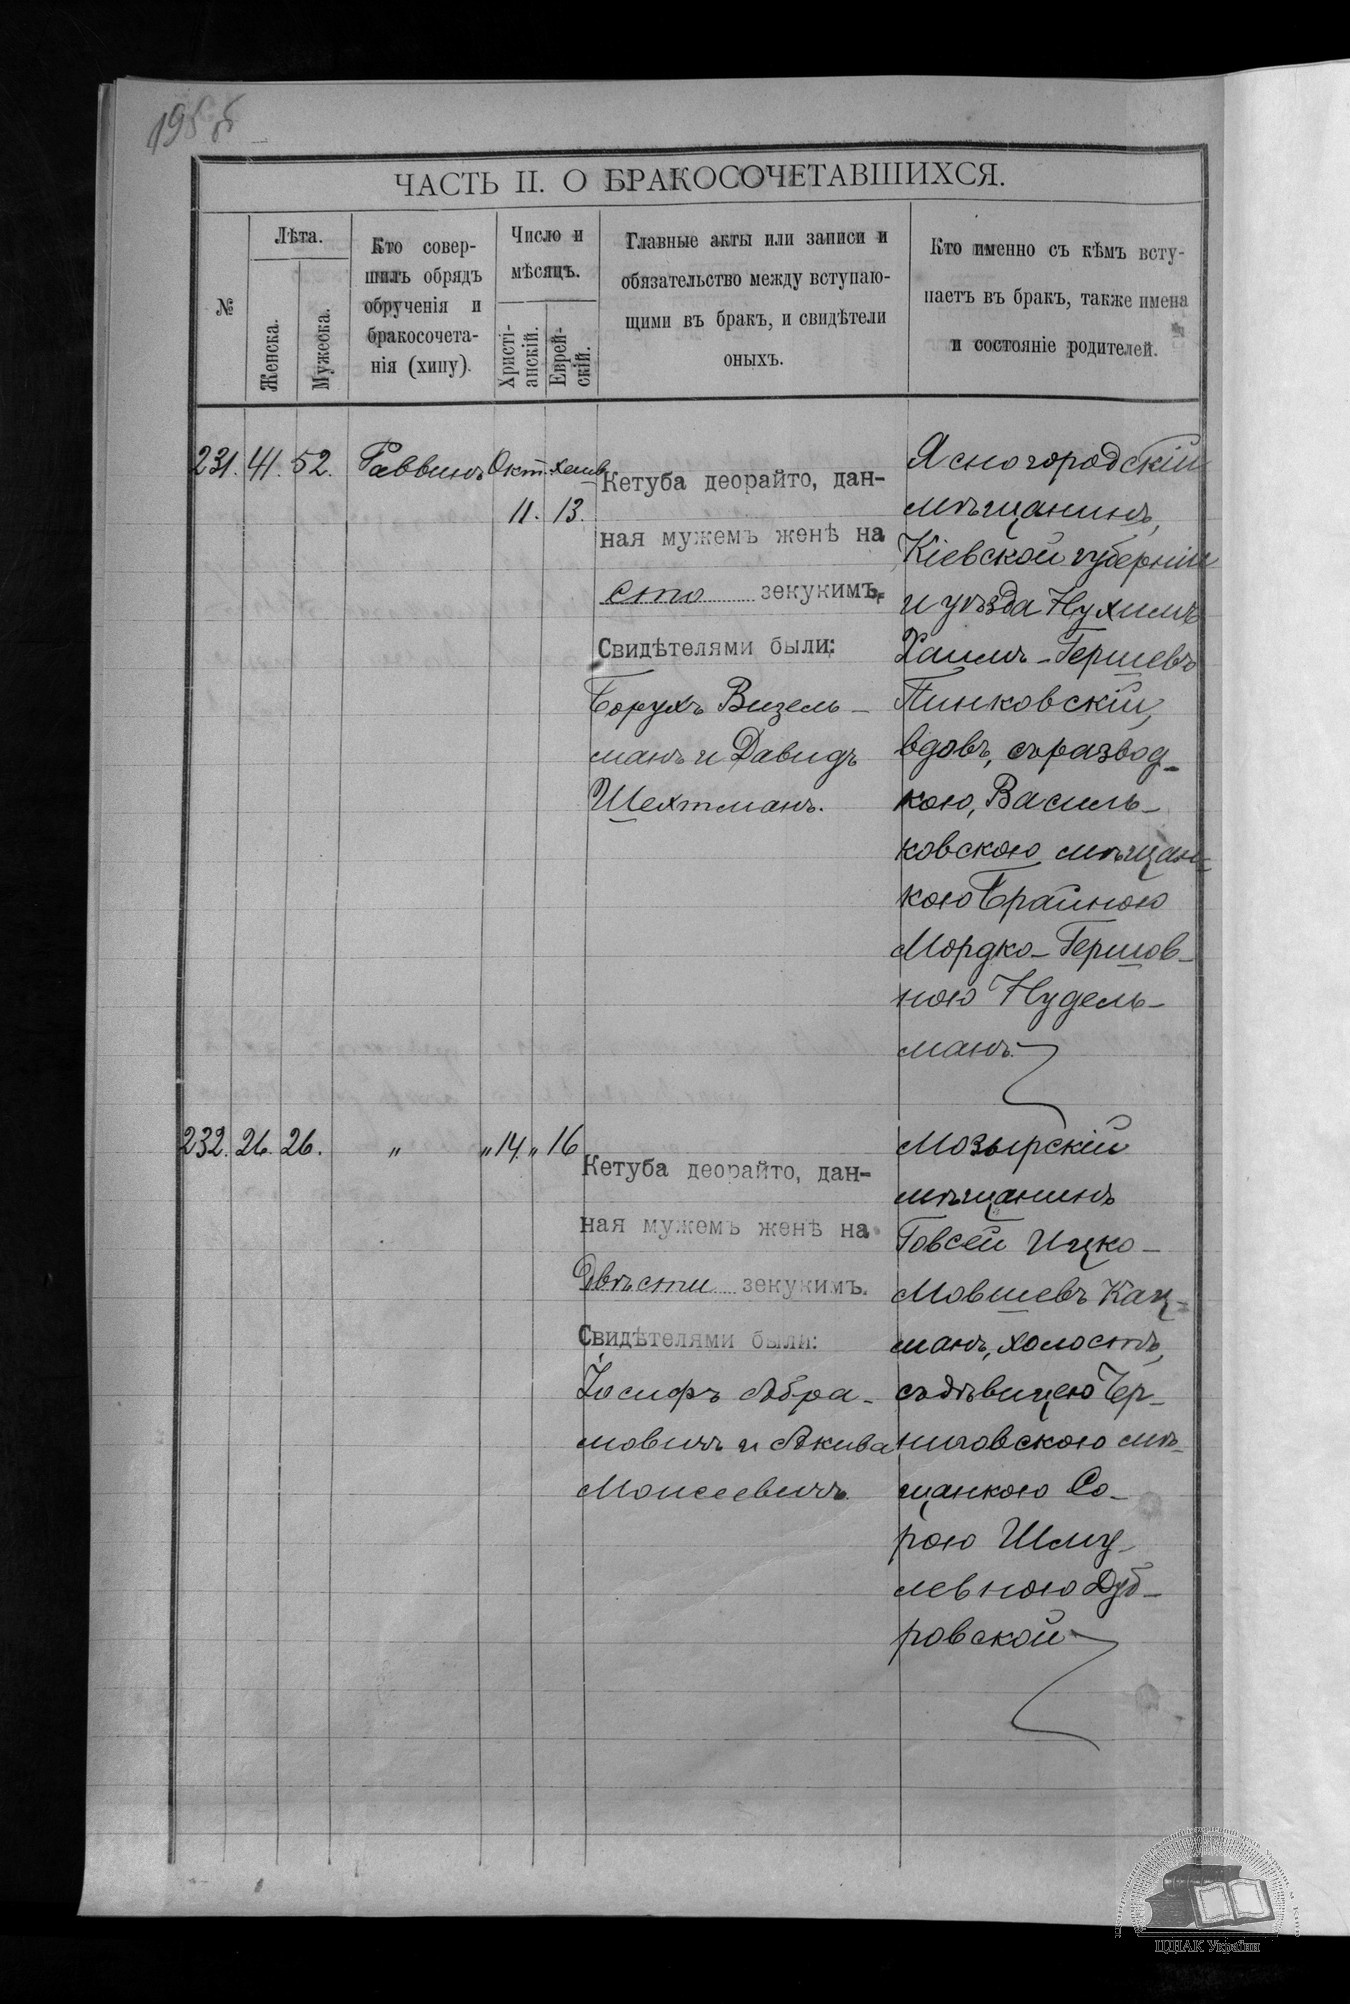 ЧАСТЬ II. О БРАКОСОЧЕТАВШИХСЯ.
№
Лѣта.
Женска.
Мужеска.
Кто совер-
шилъ обрядъ
обрученія и
бракосочета-
нія (хипу).
Число и
мѣсяцъ.
Христі-
анскій.
Еврей-
скій.
Главные акты или записи и
обязательство между вступаю-
щими въ бракъ, и свидѣтели
оныхъ.
Кто именно съ кѣмъ всту-
паетъ въ бракъ, также имена
и состояніе родителей.
231. 41. 52. Раввинъ Окт. Хешв.
11. 13.
Кетуба деорайто, дан-
ная мужемъ женѣ на
сто зекукимъ.
Свидѣтелями были:
Борухъ Визель-
манъ и Давидъ
Шехтманъ.
Ясногородскій
мѣщанинъ,
Кіевской губерніи
и уѣзда Нухимъ
Хаимъ-Гершевъ
Пинковскій,
вдовъ, съ развод-
кою, Василь-
ковскою мѣщан-
кою Брайною
Мордко-Гершов-
ною Нудель-
манъ.
232. 26. 26. " " 14. " 16
Кетуба деорайто, дан-
ная мужемъ женѣ на
Двѣсти зекукимъ.
Свидѣтелями были:
Іосифъ Абра-
мовичъ и Акива
Моисеевичъ.
Мозырскій
мѣщанинъ
Говсей Ицко-
Мовшевъ Кац-
манъ, холостъ,
съ дѣвицею Чер-
ниговскою мѣ-
щанкою Со-
рою Шму-
левною Дуб-
ровской
ЦДІАК України